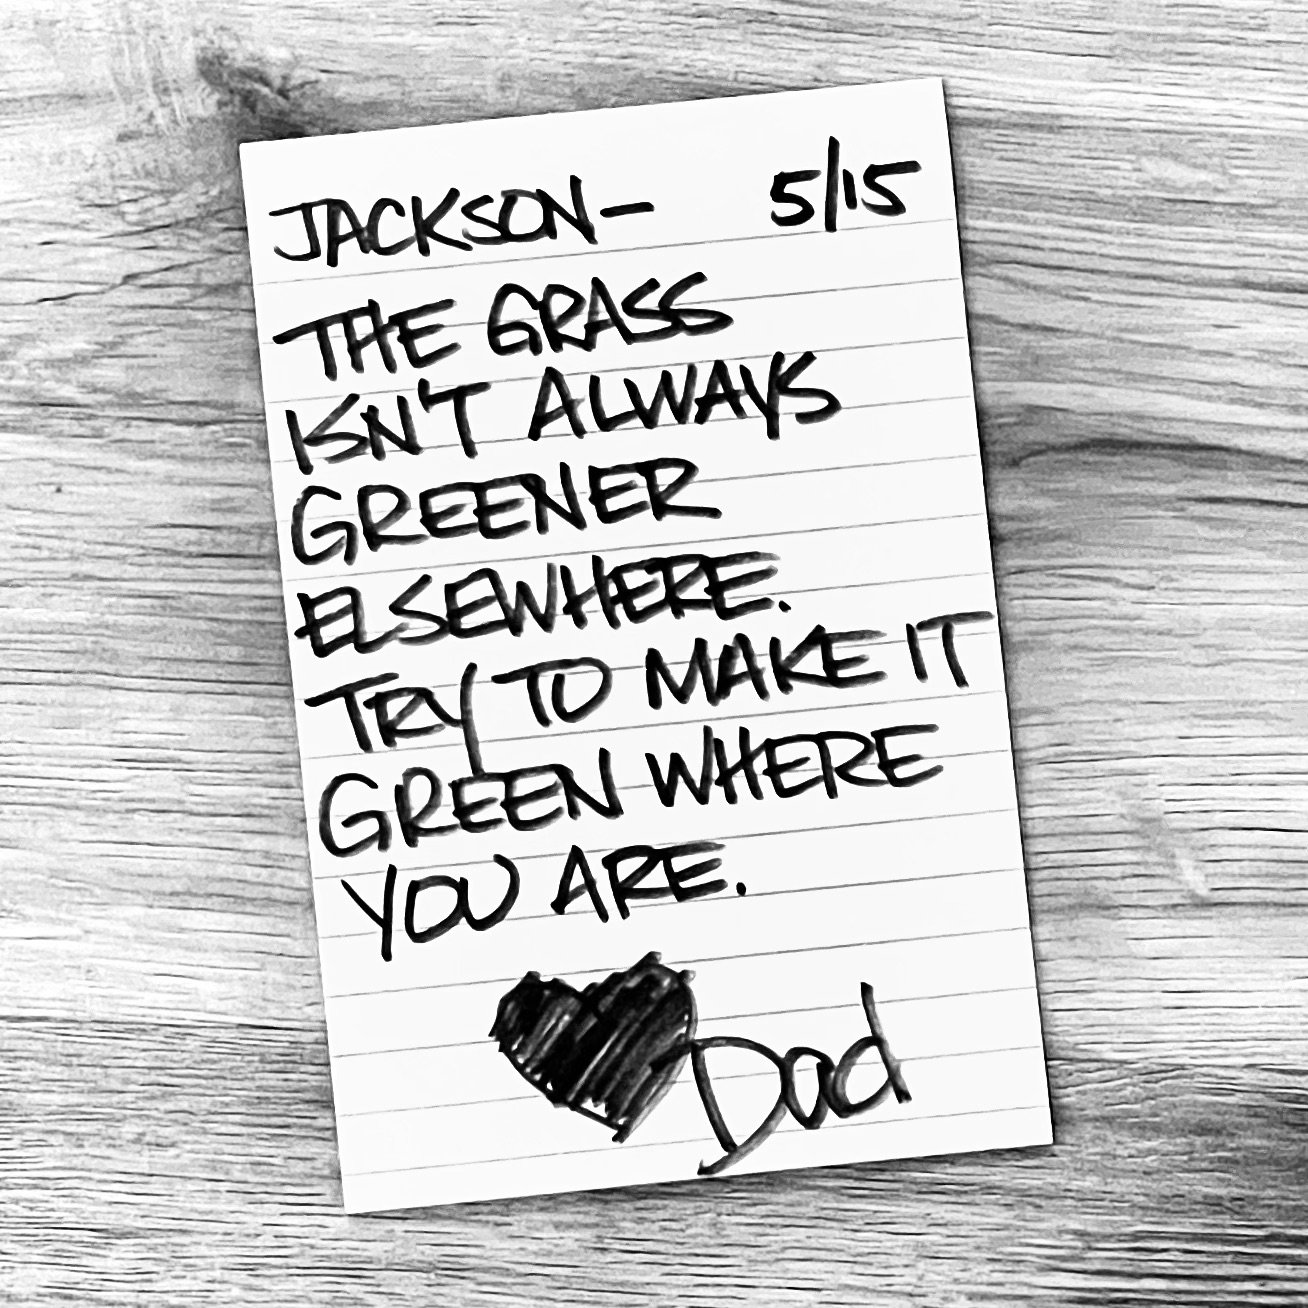 JACKSON— 5/15
THE GRASS
ISN'T ALWAYS
GREENER
ELSEWHERE.
TRY TO MAKE IT
GREEN WHERE
YOU ARE.
Dad